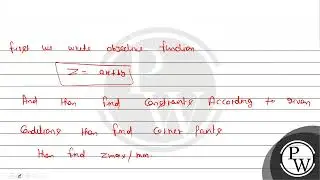 first we write objective function
Z = ax+by
And then find constraints According to given
conditions then find corner points
then find zmax/min.
PW